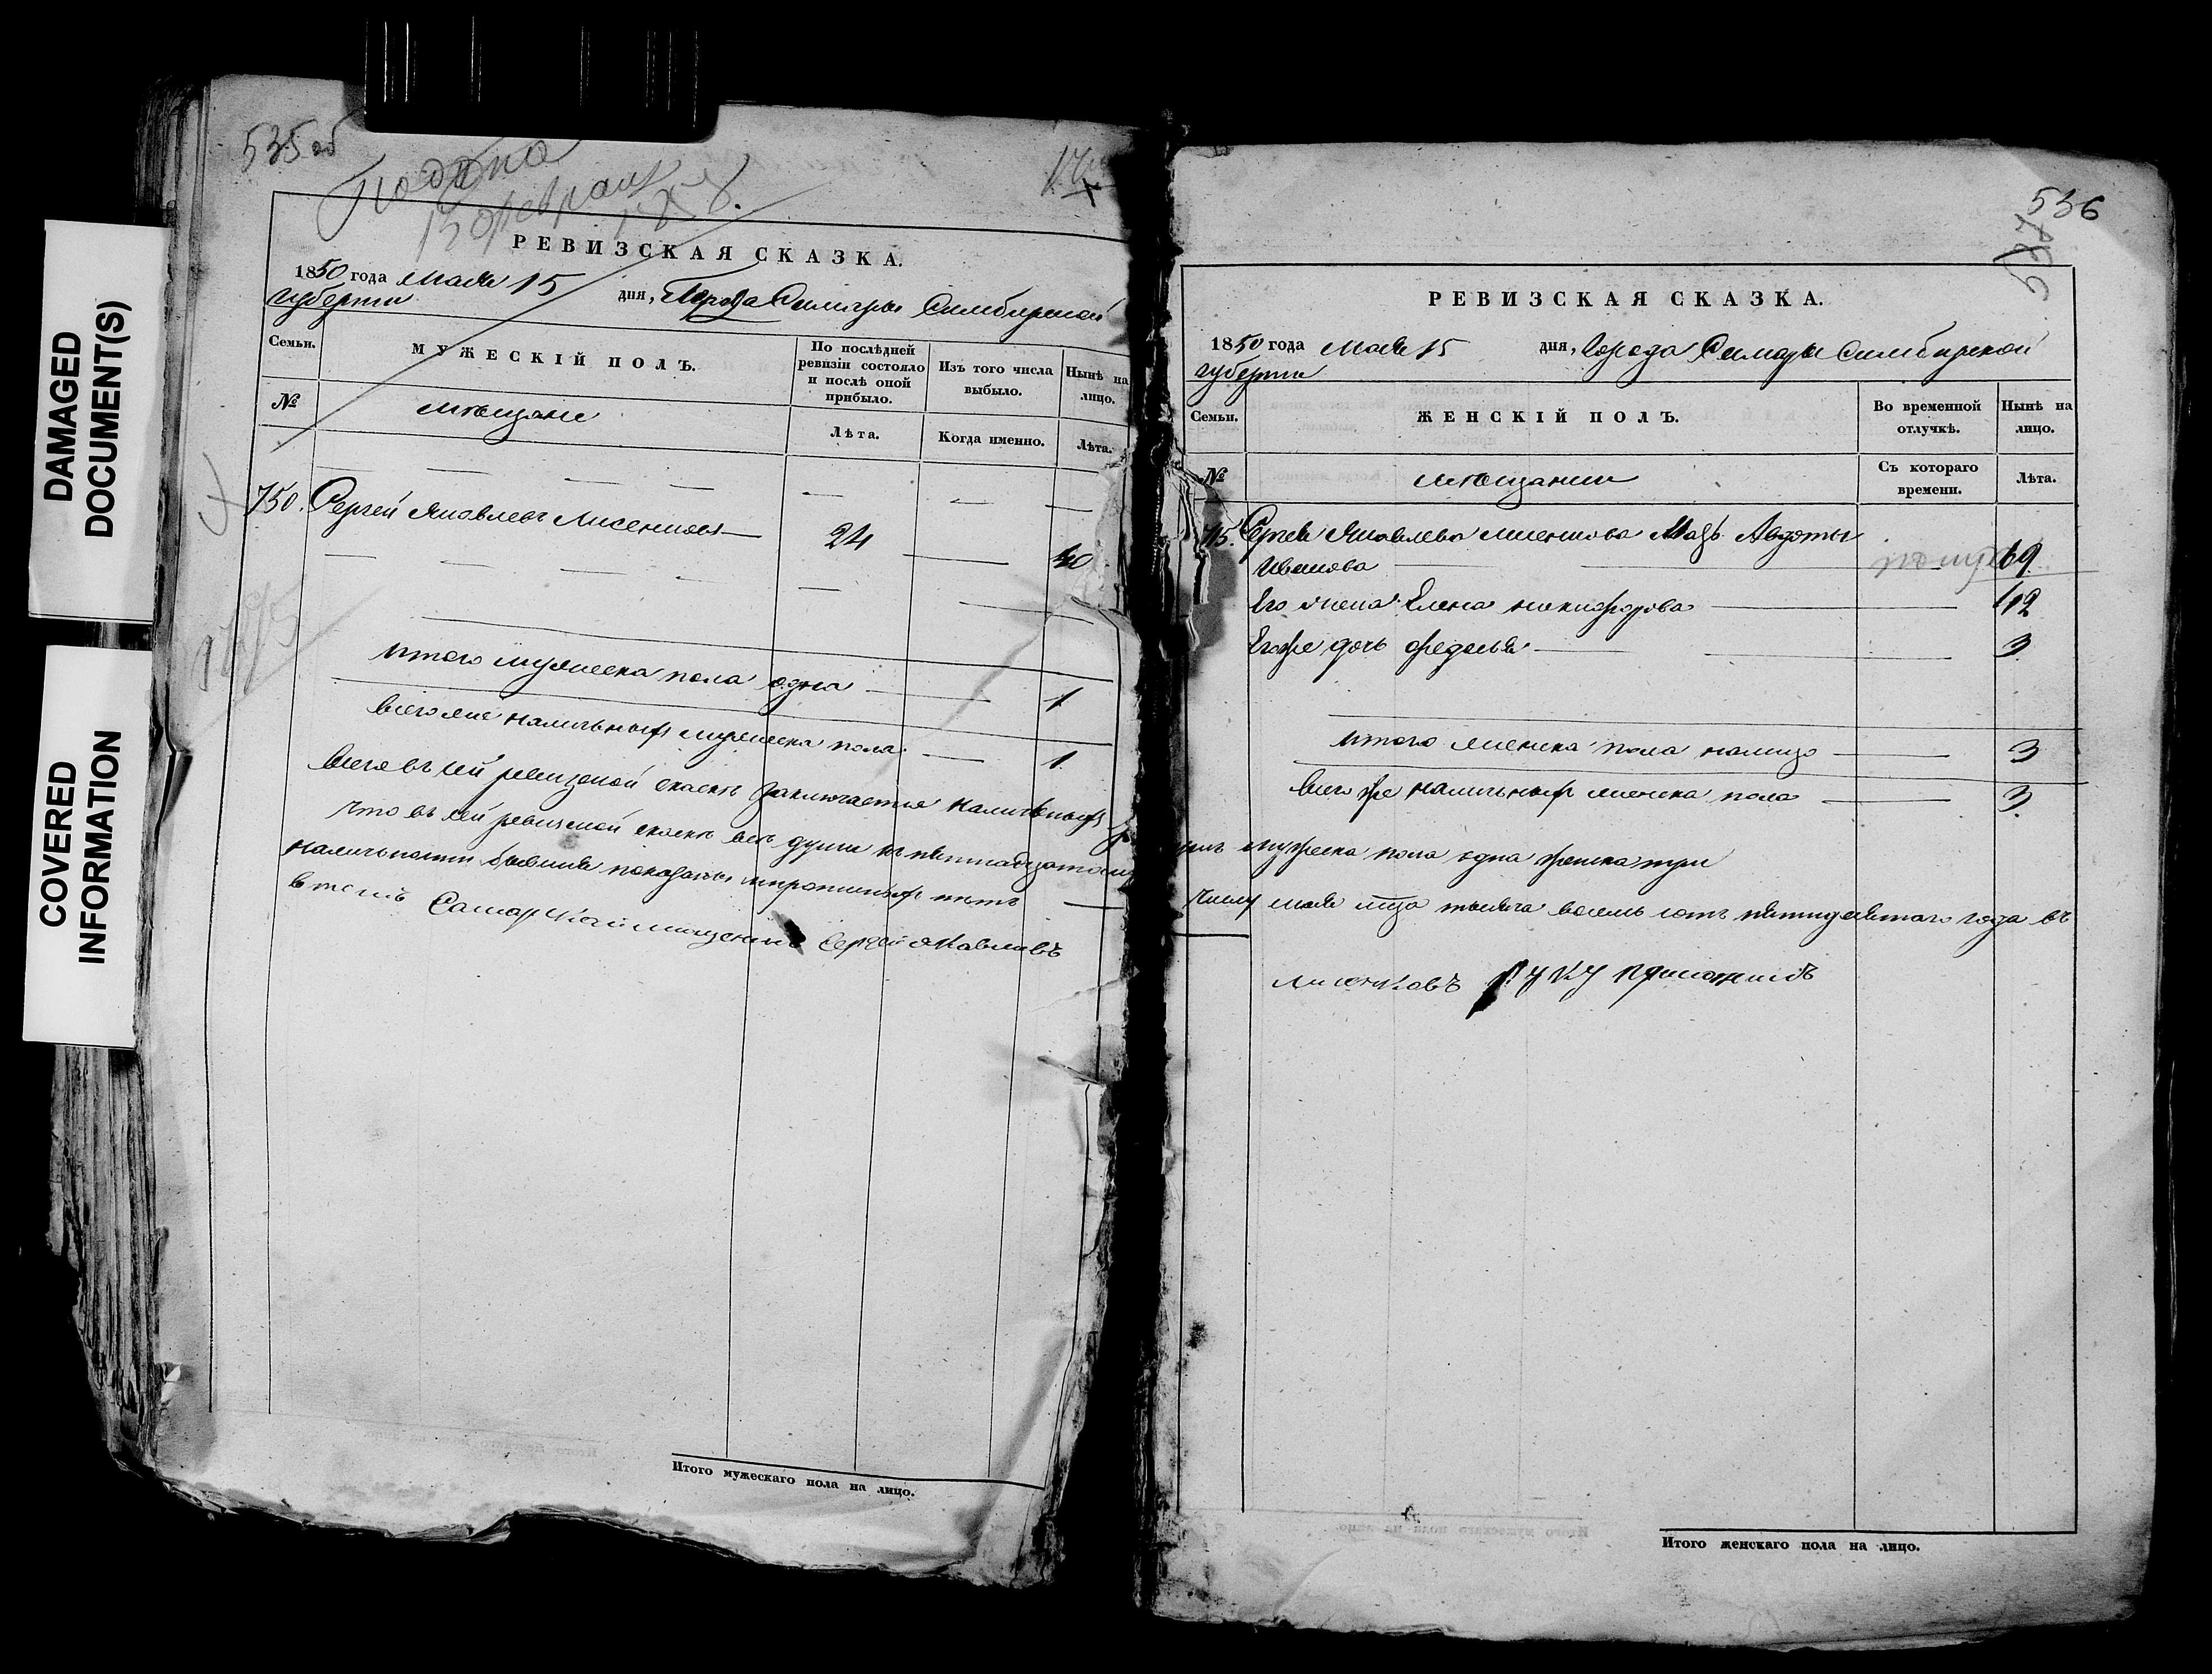 DAMAGED
DOCUMENT(S)
COVERED
INFORMATION
535 об
Подана
13 февраля
РЕВИЗСКАЯ СКАЗКА.
1850 года Маия 15 дня, Города Самары Симбирской
губернии
Семьи. МУЖЕСКІЙ ПОЛЪ. По послѣдней ревизіи состояло и послѣ оной прибыло. Изъ того числа выбыло. Нынѣ на лицо.
№ мѣщане Лѣта. Когда именно. Лѣта.
750. Сергей Яковлевъ Лисенковъ 24 40
Итого мужеска пола одна 1
Всего же наличныхъ мужеска пола 1
Всего въ сей ревизской скаскѣ заключается наличныхъ
Что въ сей ревизской скаскѣ все души къ пятнадцатому
наличности бывшие показаны и прописныхъ нѣтъ
в томъ Самарской мещенинъ Сергей Яковливъ
536
РЕВИЗСКАЯ СКАЗКА.
1850 года Маия 15 дня, Города Самары Симбирской
губернии
Семьи. ЖЕНСКІЙ ПОЛЪ. Во временной отлучкѣ. Нынѣ на лицо.
№ мѣщанки Съ котораго времени. Лѣта.
Сергея Яковлева Лисенкова Мать Авдотья
Иванова 69
Его жена Елена Никифорова 42
Его же дочь Федосья 3
Итого женска пола налицо 3
Всего же наличныхъ женска пола 3.
мужеска пола одна женска три
числу маия мца тысяча восемь сотъ пятидесятаго года въ
Лисенковъ руку приложилъ
Итого мужескаго пола на лицо.
Итого женскаго пола на лицо.